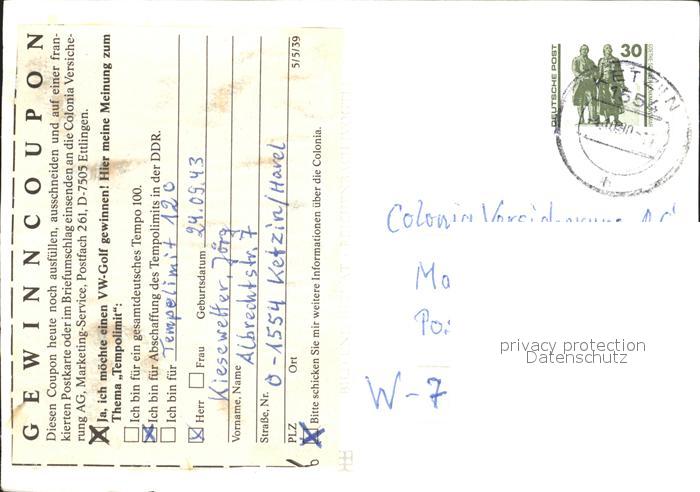 GEWINNCOUPON
Diesen Coupon heute noch ausfüllen, ausschneiden und auf einer fran-
kierten Postkarte oder im Briefumschlag einsenden an die Colonia Versiche-
rung AG, Marketing-Service, Postfach 2 61, D-7505 Ettlingen.
Ja, ich möchte einen VW-Golf gewinnen! Hier meine Meinung zum
Thema „Tempolimit“:
Ich bin für ein gesamtdeutsches Tempo 100.
Ich bin für Abschaffung des Tempolimits in der DDR.
Ich bin für Tempolimit 120
Herr Frau Geburtsdatum 24.09.43
Kiesewetter, Jörg
Vorname, Name
Albrechtstr. 7
Straße, Nr.
O-1554 Ketzin/Havel
PLZ Ort 5/5/39
Bitte schicken Sie mir weitere Informationen über die Colonia.
DEUTSCHE POST
30
KETZIN
1554
Colonia Versicherung AG
Ma
Pos
W-7
privacy protection
Datenschutz